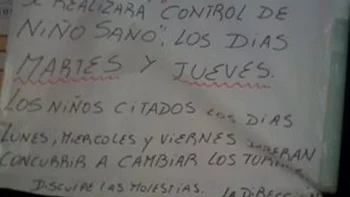 SE REALIZARÁ "CONTROL DE
NIÑO SANO", LOS DÍAS
MARTES Y JUEVES.
LOS NIÑOS CITADOS LOS DÍAS
LUNES, MIERCOLES Y VIERNES DEBERAN
CONCURRIR A CAMBIAR LOS TURNOS
DISCULPE LAS MOLESTIAS. LA DIRECCIÓN